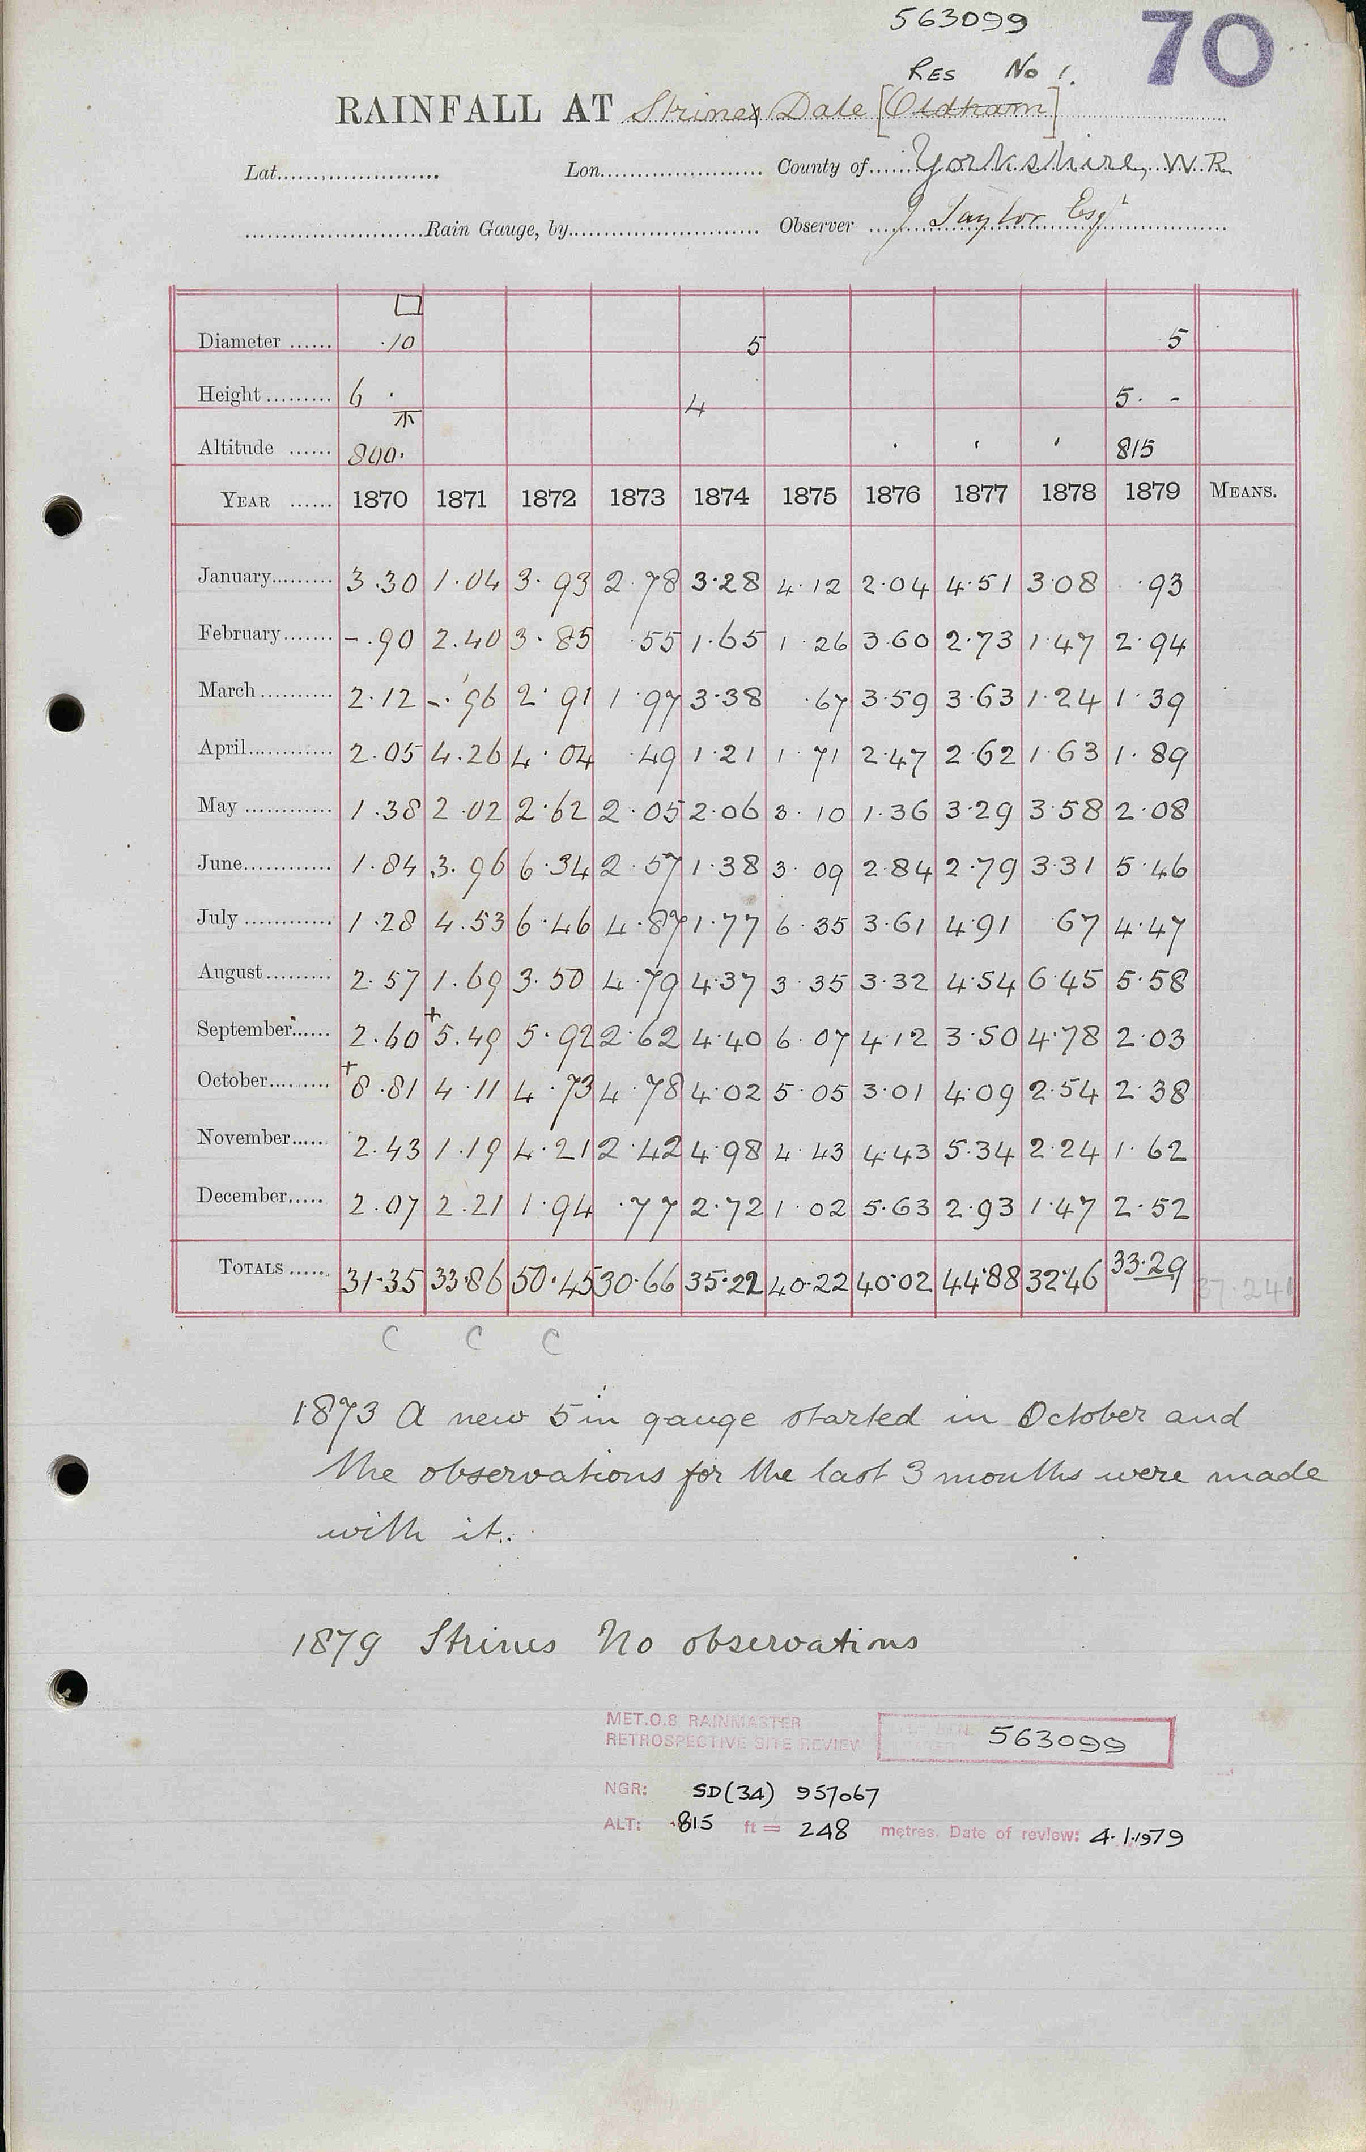 563099
70
RES No 1.
RAINFALL AT Strines Dale [Oldham]
Lat. Lon. County of Yorkshire, W.R.
Rain Gauge, by Observer J Taylor Esqr
Diameter 10 5 5
Height 6 4 5. -
Altitude 800 815
YEAR 1870 1871 1872 1873 1874 1875 1876 1877 1878 1879 MEANS.
January 3.30 1.04 3.93 2.78 3.28 4.12 2.04 4.51 3.08 .93
February -.90 2.40 3.85 .55 1.65 1.26 3.60 2.73 1.47 2.94
March 2.12 -.96 2.91 1.97 3.38 .67 3.59 3.63 1.24 1.39
April 2.05 4.26 4.04 .49 1.21 1.71 2.47 2.62 1.63 1.89
May 1.38 2.02 2.62 2.05 2.06 3.10 1.36 3.29 3.58 2.08
June 1.84 3.96 6.34 2.57 1.38 3.09 2.84 2.79 3.31 5.46
July 1.28 4.53 6.46 4.87 1.77 6.35 3.61 4.91 67 4.47
August 2.57 1.69 3.50 4.79 4.37 3.35 3.32 4.54 6.45 5.58
September 2.60 +5.49 5.92 2.62 4.40 6.07 4.12 3.50 4.78 2.03
October +8.81 4.11 4.73 4.78 4.02 5.05 3.01 4.09 2.54 2.38
November 2.43 1.19 4.21 2.42 4.98 4.43 4.43 5.34 2.24 1.62
December 2.07 2.21 1.94 .77 2.72 1.02 5.63 2.93 1.47 2.52
TOTALS 31.35 33.86 50.45 30.66 35.22 40.22 40.02 44.88 32.46 33.29 37.241
C C C
1873 A new 5in gauge started in October and
the observations for the last 3 months were made
with it.
1879 Strines No observations
MET.O.8 RAINMASTER
RETROSPECTIVE SITE REVIEW 563099
NGR: SD(34) 957067
ALT: 815 ft = 248 metres. Date of review: 4.1.1979